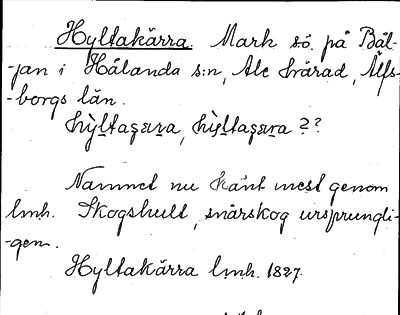 Hyltakärra. Mark sö. på Bäl-
-jan i Hålanda s:n, Ale härad, Älfs-
-borgs län.
??
Namnet nu känt mest genom
lmh. Skogshult, snårskog ursprungli-
-gen.
Hyltakärra lmh. 1827.